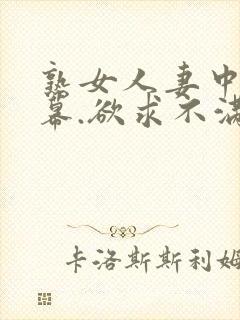 熟女人妻中
幕.欲求不满
卡洛斯斯利姆